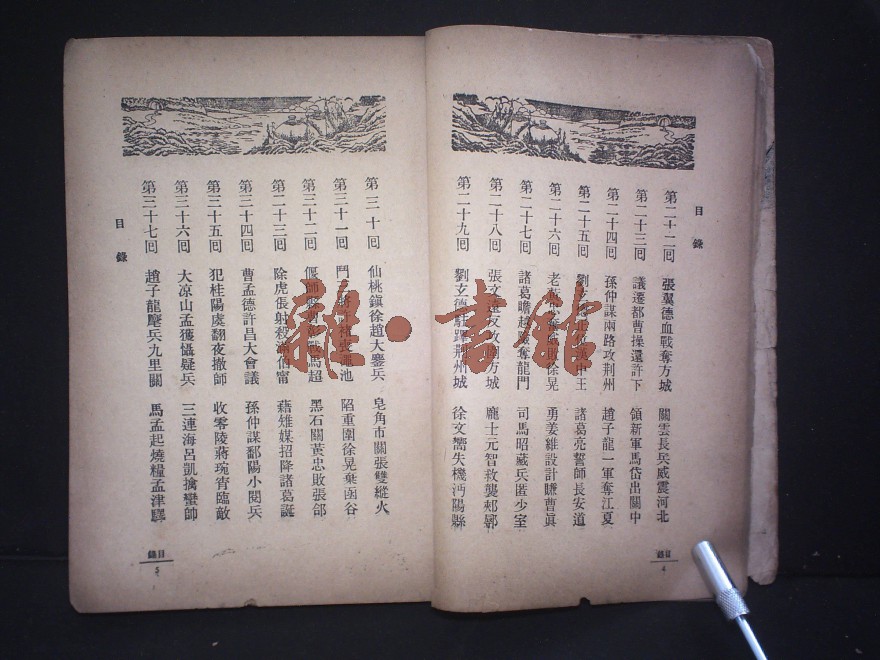 目錄
第二十二回 張翼德血戰奪方城 關雲長兵威震河北
第二十三回 議遷都曹操還許下 領新軍馬岱出關中
第二十四回 孫仲謀兩路攻荆州 趙子龍一軍奪江夏
第二十五回 劉玄德正位漢中王 諸葛亮誓師長安道
第二十六回 老 徐晃 勇姜維設計賺曹眞
第二十七回 諸葛瞻越險奪龍門 司馬昭藏兵匿少室
第二十八回 張文遠反攻 方城 龐士元智救襲郟鄏
第二十九回 劉玄德駐蹕荆州城 徐文嚮失機沔陽縣
目錄 4
第三十回 仙桃鎭徐趙大鏖兵 皂角市關張雙縱火
第三十一回 鬥 將許褚喪澠池 陷重圍徐晃棄函谷
第三十二回 偃師 戰馬超 黑石關黃忠敗張郃
第二十三回 除虎倀射殺 伯甯 藉雉媒招降諸葛誕
第三十四回 曹孟德許昌大會議 孫仲謀鄱陽小閱兵
第三十五回 犯桂陽虞翻夜撤師 收零陵蔣琬宵臨敵
第三十六回 大凉山孟獲懾疑兵 三連海呂凱擒蠻帥
第三十七回 趙子龍鏖兵九里關 馬孟起燒糧孟津驛
目錄
目錄 5
雜·書館